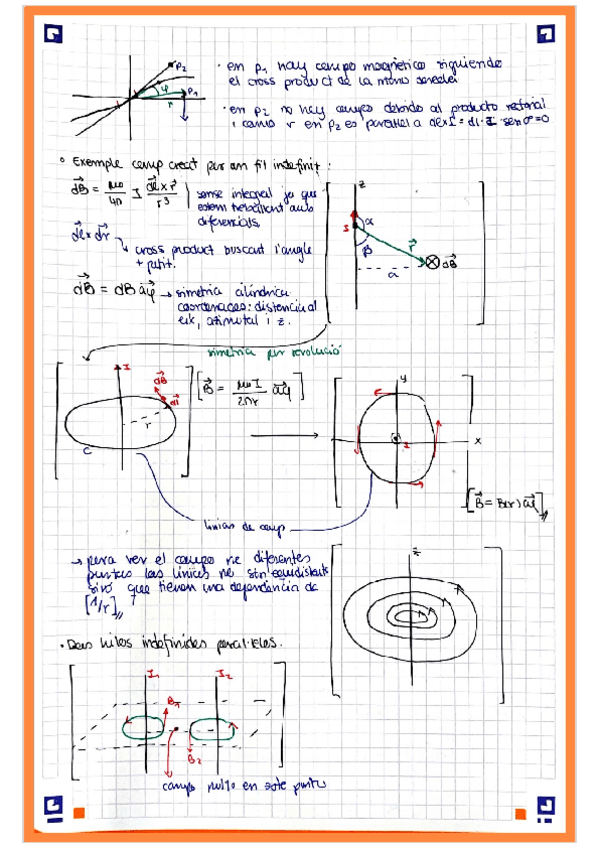 p2
φ
p1
r
· en p1 hay campo magnético siguiendo
el cross product de la mano derecha
· en p2 no hay campo debido al producto vectorial
i como r en p2 es paralel a
sen 0 = 0
° Exemple camp creat per un fil indefinit:
dB = μ0/4π I dl x r / r³
sense integral ja que
estem treballant amb
diferencials
z
α
I
β
r
dB
a
dl x dr
cross product buscant l'angle
+ petit.
dB = dB aφ → simetria cilíndrica
coordenades: distancia al
eix, azimutal i z.
simetria per revolució
I
dB
dl
r
C
[B = μ0 I / 2πr aφ]
y
x
I
[B = B(r) aφ]
linias de camp
→ para ver el campo ne diferentes
puntos las linies ne sin equidistants
sinó que tienen una dependencia de
[1/r]
z
· Dos hilos indefinides paral·leles.
I1
I2
B1
B2
campo nulo en este punto